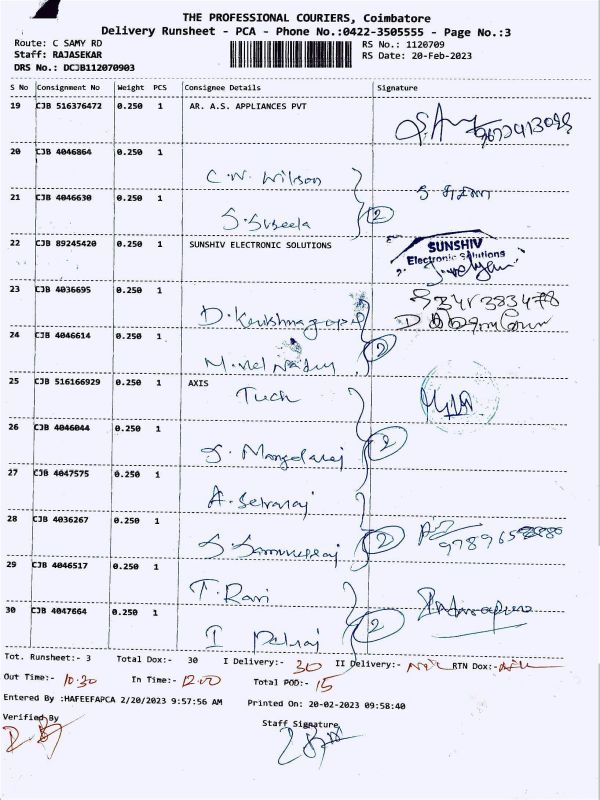 THE PROFESSIONAL COURIERS, Coimbatore
Delivery Runsheet - PCA - Phone No.:0422-3505555 - Page No.:3
Route: C SAMY RD
RS No.: 1120709
Staff: RAJASEKAR
RS Date: 20-Feb-2023
DRS No.: DCJB112070903
S No Consignment No Weight PCS Consignee Details Signature
19 CJB 516376472 0.250 1 AR. A.S. APPLIANCES PVT
20 CJB 4046864 0.250 1
C.W. Wilson
21 CJB 4046630 0.250 1
S. Suseela 2
22 CJB 89245420 0.250 1 SUNSHIV ELECTRONIC SOLUTIONS
SUNSHIV
Electronic Solutions
23 CJB 4036695 0.250 1
24 CJB 4046614 0.250 1
2
25 CJB 516166929 0.250 1 AXIS
Tuch
26 CJB 4046044 0.250 1
S. Mangalaraj 2
27 CJB 4047575 0.250 1
A. Selvaraj
28 CJB 4036267 0.250 1
2
29 CJB 4046517 0.250 1
T. Ravi
30 CJB 4047664 0.250 1
2
Tot. Runsheet:- 3 Total Dox:- 30 I Delivery:- 30 II Delivery:- Nil RTN Dox:- Nil
Out Time:- 10:30 In Time:- 12:00 Total POD:- 15
Entered By :HAFEEFAPCA 2/20/2023 9:57:56 AM Printed On: 20-02-2023 09:58:40
Verified By
Staff Signature